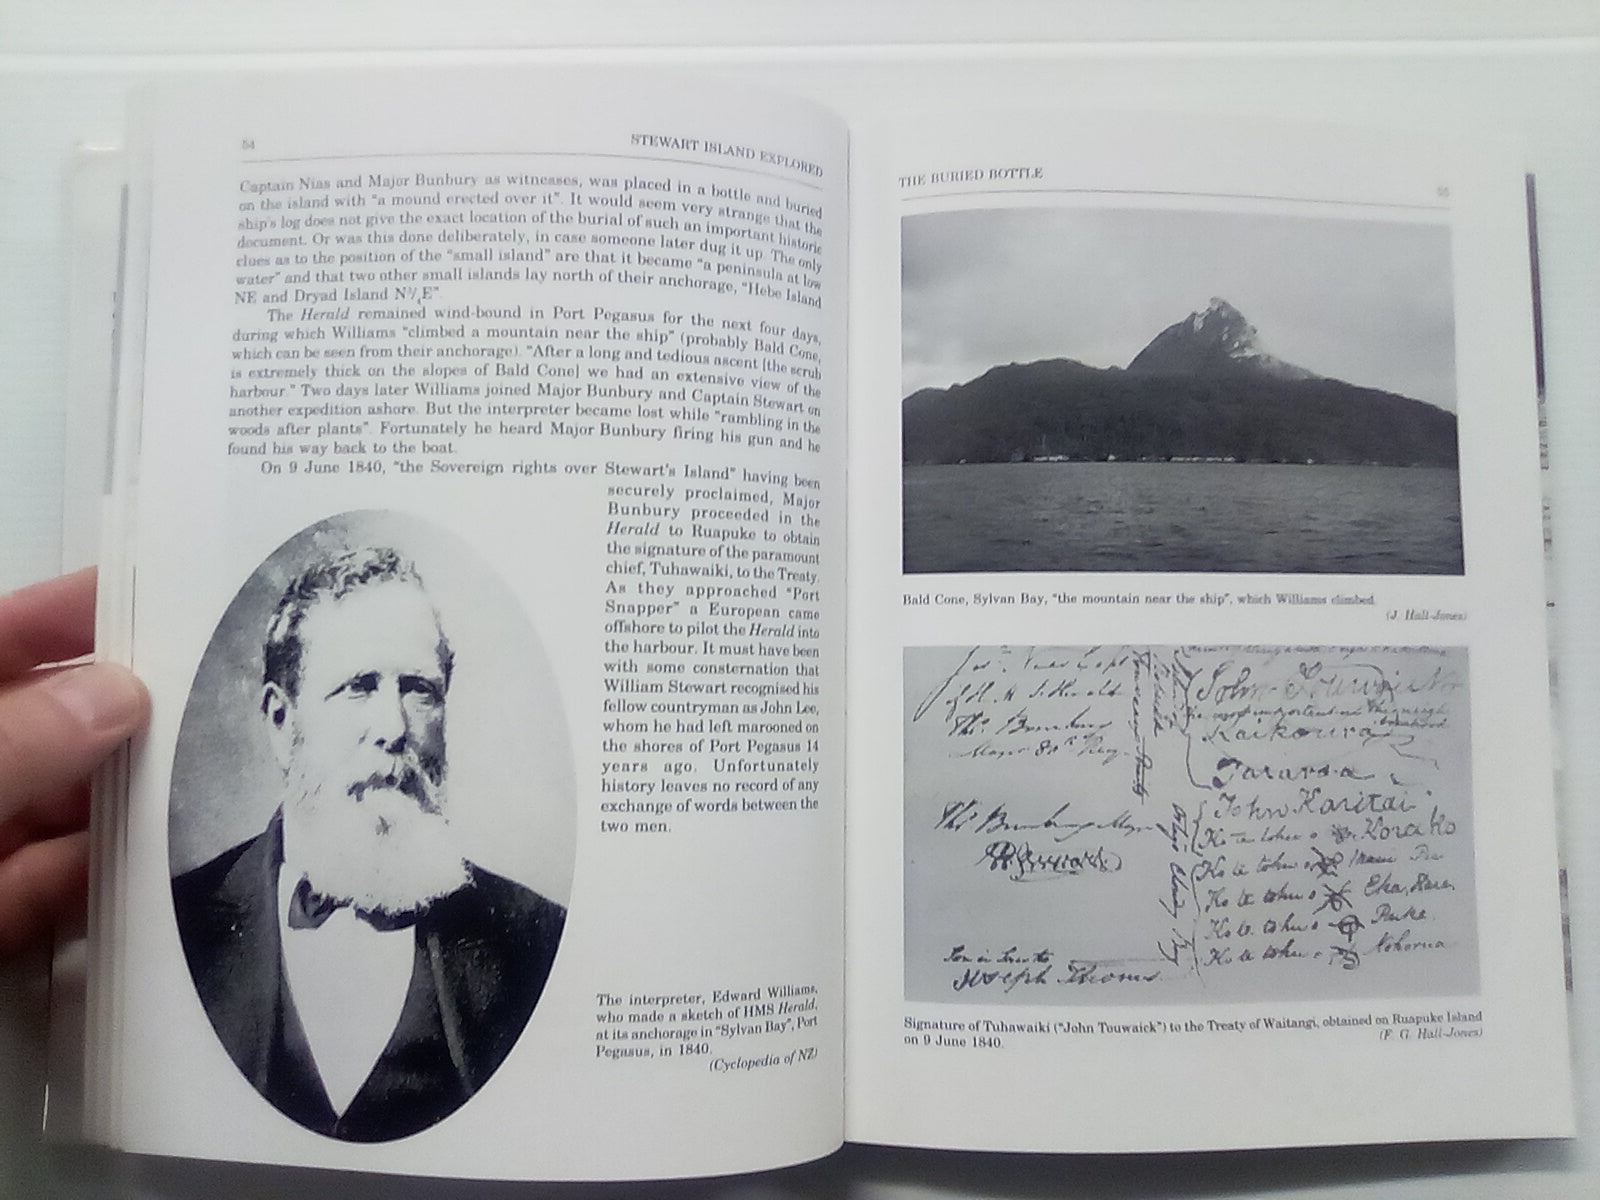 54
STEWART ISLAND EXPLORED
Captain Nias and Major Bunbury as witnesses, was placed in a bottle and buried
on the island with "a mound erected over it". It would seem very strange that the
ship's log does not give the exact location of the burial of such an important historic
document. Or was this done deliberately, in case someone later dug it up. The only
clues as to the position of the "small island" are that it became "a peninsula at low
water" and that two other small islands lay north of their anchorage, "Hebe Island
NE and Dryad Island N¾E".
The Herald remained wind-bound in Port Pegasus for the next four days,
during which Williams "climbed a mountain near the ship" (probably Bald Cone,
which can be seen from their anchorage). "After a long and tedious ascent [the scrub
is extremely thick on the slopes of Bald Cone] we had an extensive view of the
harbour." Two days later Williams joined Major Bunbury and Captain Stewart on
another expedition ashore. But the interpreter became lost while "rambling in the
woods after plants". Fortunately he heard Major Bunbury firing his gun and he
found his way back to the boat.
On 9 June 1840, "the Sovereign rights over Stewart's Island" having been
securely proclaimed, Major
Bunbury proceeded in the
Herald to Ruapuke to obtain
the signature of the paramount
chief, Tuhawaiki, to the Treaty.
As they approached "Port
Snapper" a European came
offshore to pilot the Herald into
the harbour. It must have been
with some consternation that
William Stewart recognised his
fellow countryman as John Lee,
whom he had left marooned on
the shores of Port Pegasus 14
years ago. Unfortunately
history leaves no record of any
exchange of words between the
two men.
The interpreter, Edward Williams,
who made a sketch of HMS Herald,
at its anchorage in "Sylvan Bay", Port
Pegasus, in 1840.
(Cyclopedia of NZ)
THE BURIED BOTTLE
55
Bald Cone, Sylvan Bay, "the mountain near the ship", which Williams climbed.
(J. Hall-Jones)
of H. M. S. Herald
Thos. Bunbury
Major 80th Reg
John
Kaikoura
Taiaroa
John Karitai
Ko te tohu o Korako
Ko te tohu o
Ko te tohu o
Ko te tohu o
Ko te tohu o
Thos. Bunbury Major
Joseph Thomas
Signature of Tuhawaiki ("John Touwaick") to the Treaty of Waitangi, obtained on Ruapuke Island
on 9 June 1840.
(F. G. Hall-Jones)